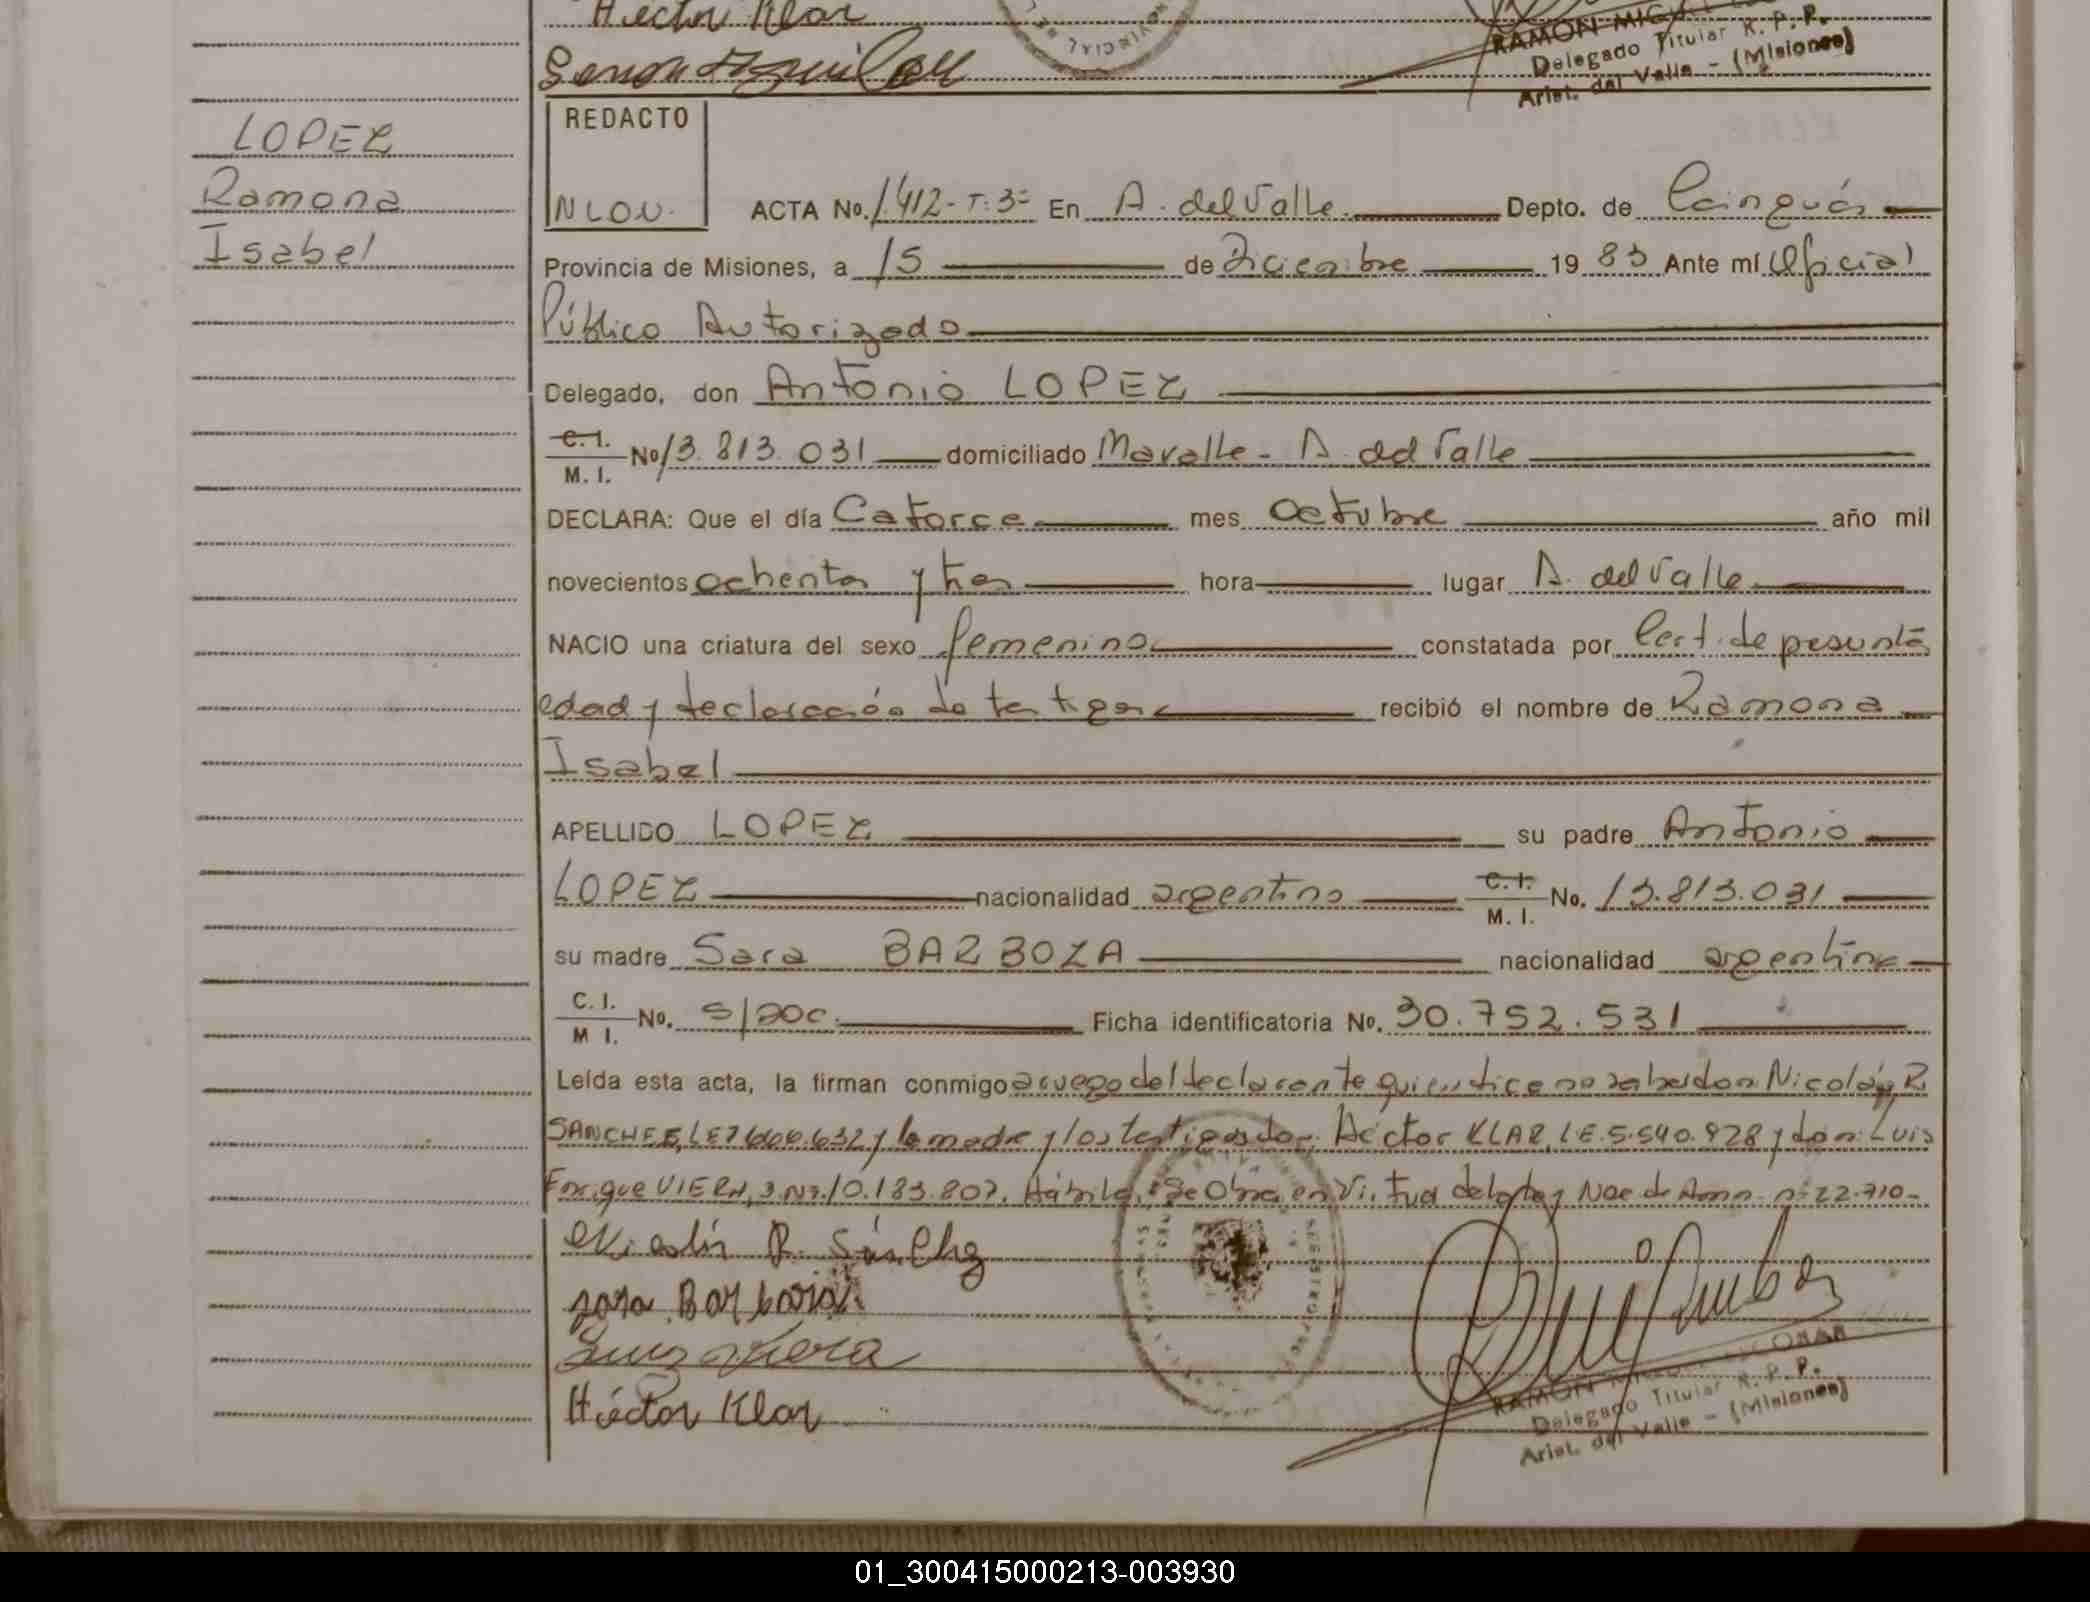 Héctor Klar
RAMON MIGUEL
Delegado Titular R. P. P.
Arist. del Valle - (Misiones)
LOPEZ
Ramona
Isabel
REDACTO
N LOV.
ACTA No. 1.412-T:3º En A. del Valle Depto. de Cainguás
Provincia de Misiones, a 15 de Diciembre 19 83 Ante mí Oficial
Público Autorizado
Delegado, don Antonio LOPEZ
C. I.
M. I. No 13.813.031 domiciliado Mavalle - A. del Valle
DECLARA: Que el día Catorce mes octubre año mil
novecientos ochenta y tres hora lugar A. del Valle
NACIO una criatura del sexo femenino constatada por Cert. de pesunta
edad y declaración de testigos recibió el nombre de Ramona
Isabel
APELLIDO LOPEZ su padre Antonio
LOPEZ nacionalidad argentino C. I. M. I. No. 13.813.031
su madre Sara BARBOZA nacionalidad argentina
C. I.
M I. No. S/doc. Ficha identificatoria No. 30.752.531
Leída esta acta, la firman conmigo a ruego del declarante quien dice no saber don Nicolás R.
SANCHEZ, LE 7.606.632 y la madre y los testigos don: Héctor KLAR, LE. 5.540.928 y don: Luis
Enrique VIERA, D.Nº. 10.183.807. Hábiles. Se Obra en Virtud de la ley Nac. de Amn. nº 22.710-
Nicolás R. Sánchez
sara Barboza
Luis Viera
Héctor Klar
RAMON
Delegado Titular R. P. P.
Arist. del Valle - (Misiones)
01_300415000213-003930